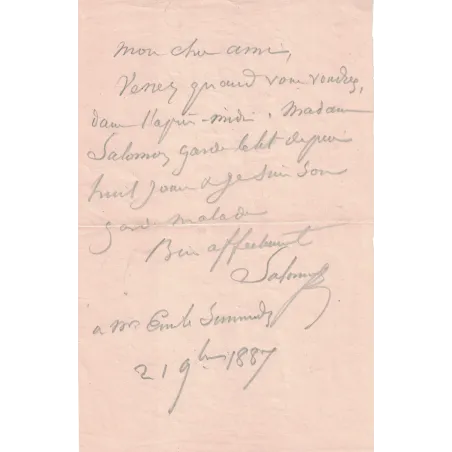 Mon cher ami,
Venez quand vous voudrez,
dans l'après-midi. Madame
Salomon garde le lit depuis
huit jours & je suis son
garde malade
Bien affectueusement
Salomon
à Mr Emile
21 9bre 1887